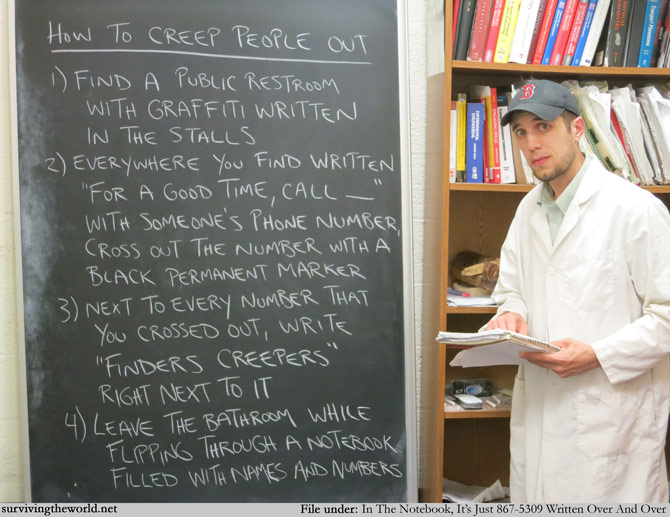 HOW TO CREEP PEOPLE OUT
1) FIND A PUBLIC RESTROOM
WITH GRAFFITI WRITTEN
IN THE STALLS
2) EVERYWHERE YOU FIND WRITTEN
"FOR A GOOD TIME, CALL __"
WITH SOMEONE'S PHONE NUMBER,
CROSS OUT THE NUMBER WITH A
BLACK PERMANENT MARKER
3) NEXT TO EVERY NUMBER THAT
YOU CROSSED OUT, WRITE
"FINDERS CREEPERS"
RIGHT NEXT TO IT
4) LEAVE THE BATHROOM WHILE
FLIPPING THROUGH A NOTEBOOK
FILLED WITH NAMES AND NUMBERS
B
survivingtheworld.net
File under: In The Notebook, It's Just 867-5309 Written Over And Over